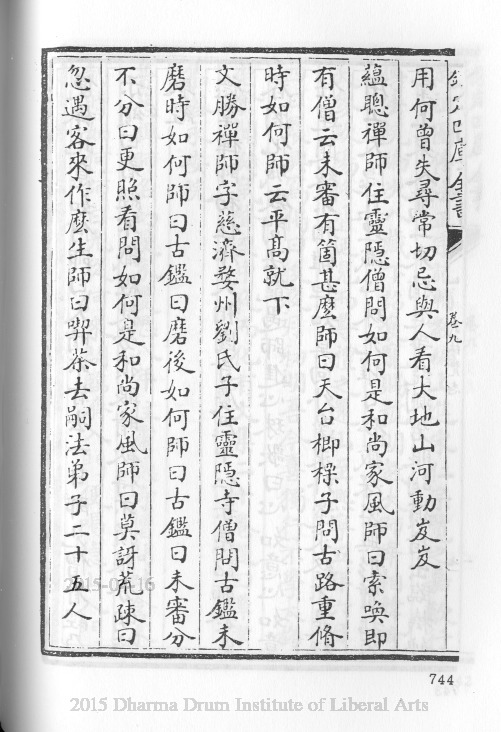 欽定四庫全書
卷九
用何曾失尋常切忌與人看大地山河動岌岌
蘊聰禪師住靈隱僧問如何是和尚家風師曰索喚即
有僧云未審有箇甚麽師曰天台楖樑子問古路重脩
時如何師云平髙就下
文勝禪師字慈濟婺州劉氏子住靈隱寺僧問古鑑未
磨時如何師曰古鑑曰磨後如何師曰古鑑曰未審分
不分曰更照看問如何是和尚家風師曰莫訝荒疎曰
忽遇客來作麽生師曰喫茶去嗣法弟子二十五人
744
2015-04-16
2015 Dharma Drum Institute of Liberal Arts